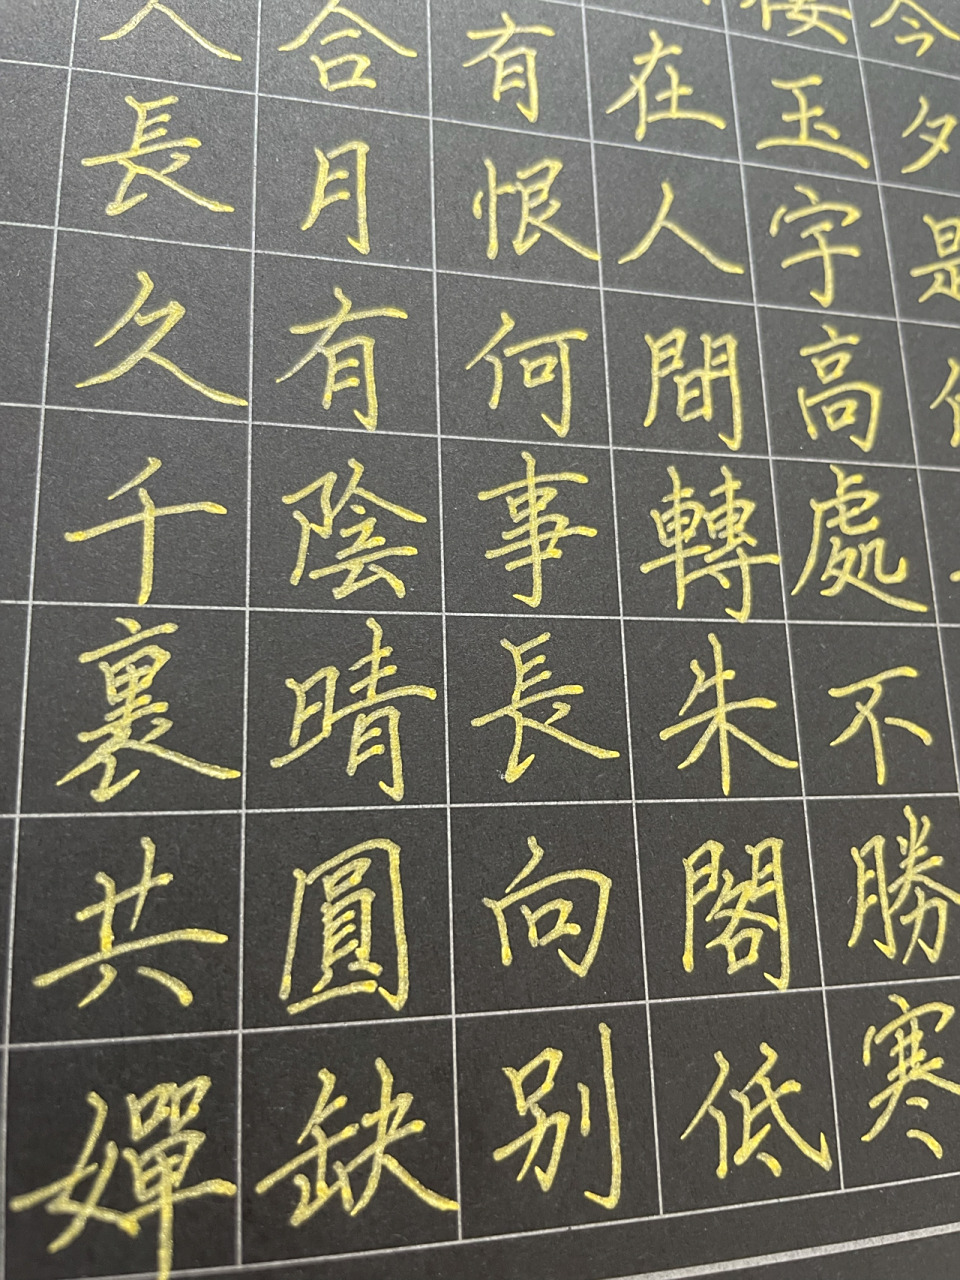 今夕是
玉宇高處不勝寒
在人間轉朱閣低
有恨何事長向别
合月有陰晴圓缺
人長久千裏共嬋